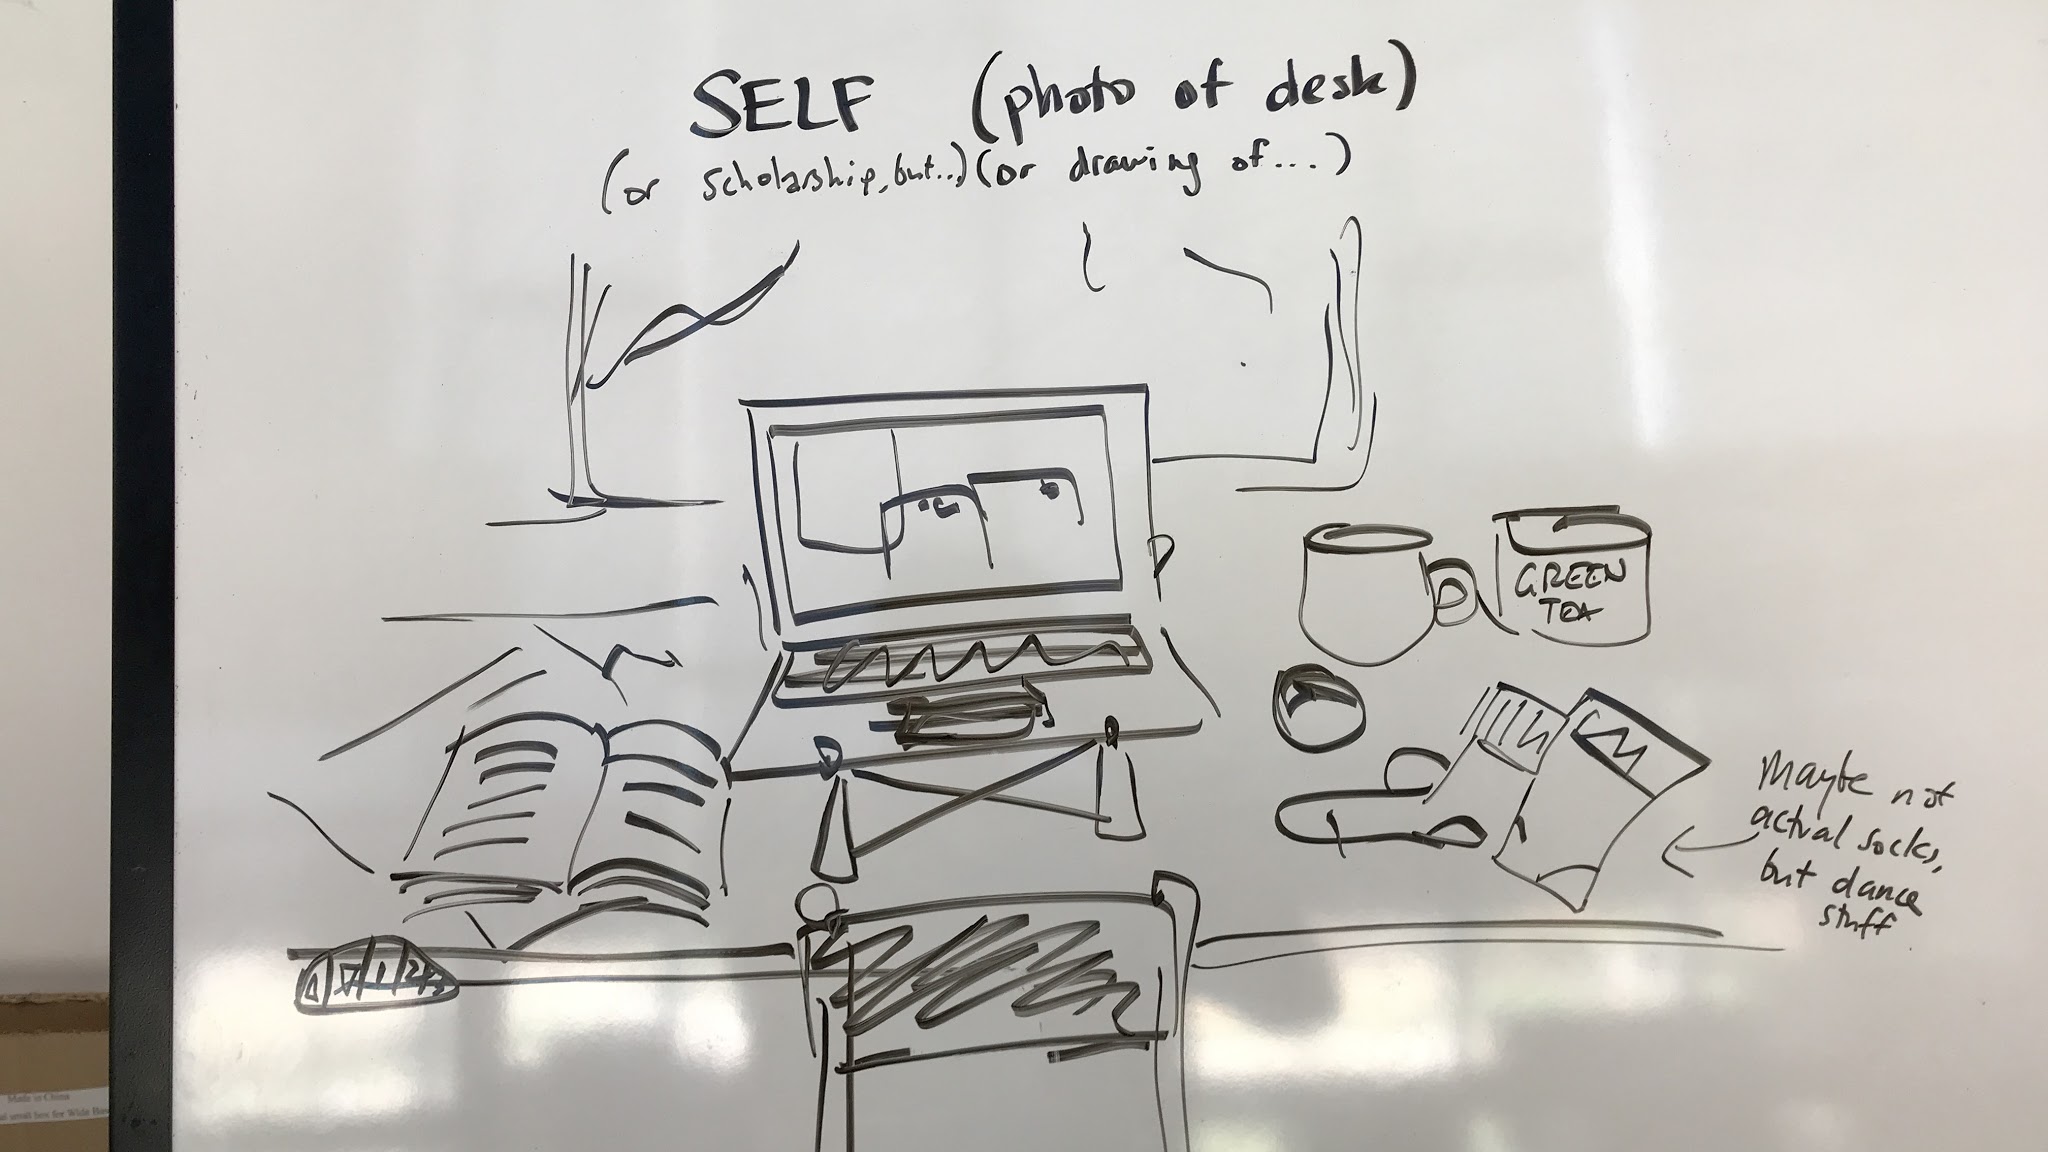 SELF (photo of desk)
(or scholarship, but...) (or drawing of....)
GREEN
TEA
Maybe not
actual socks,
but dance
stuff
Made in China